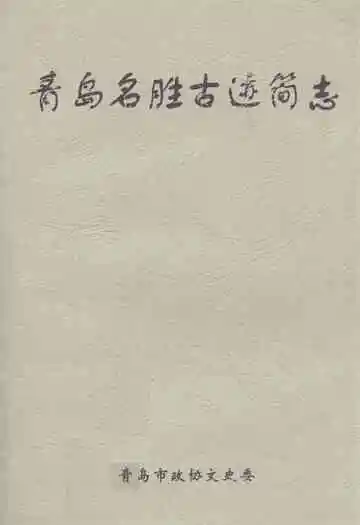 青岛名胜古迹简志
青岛市政协文史委